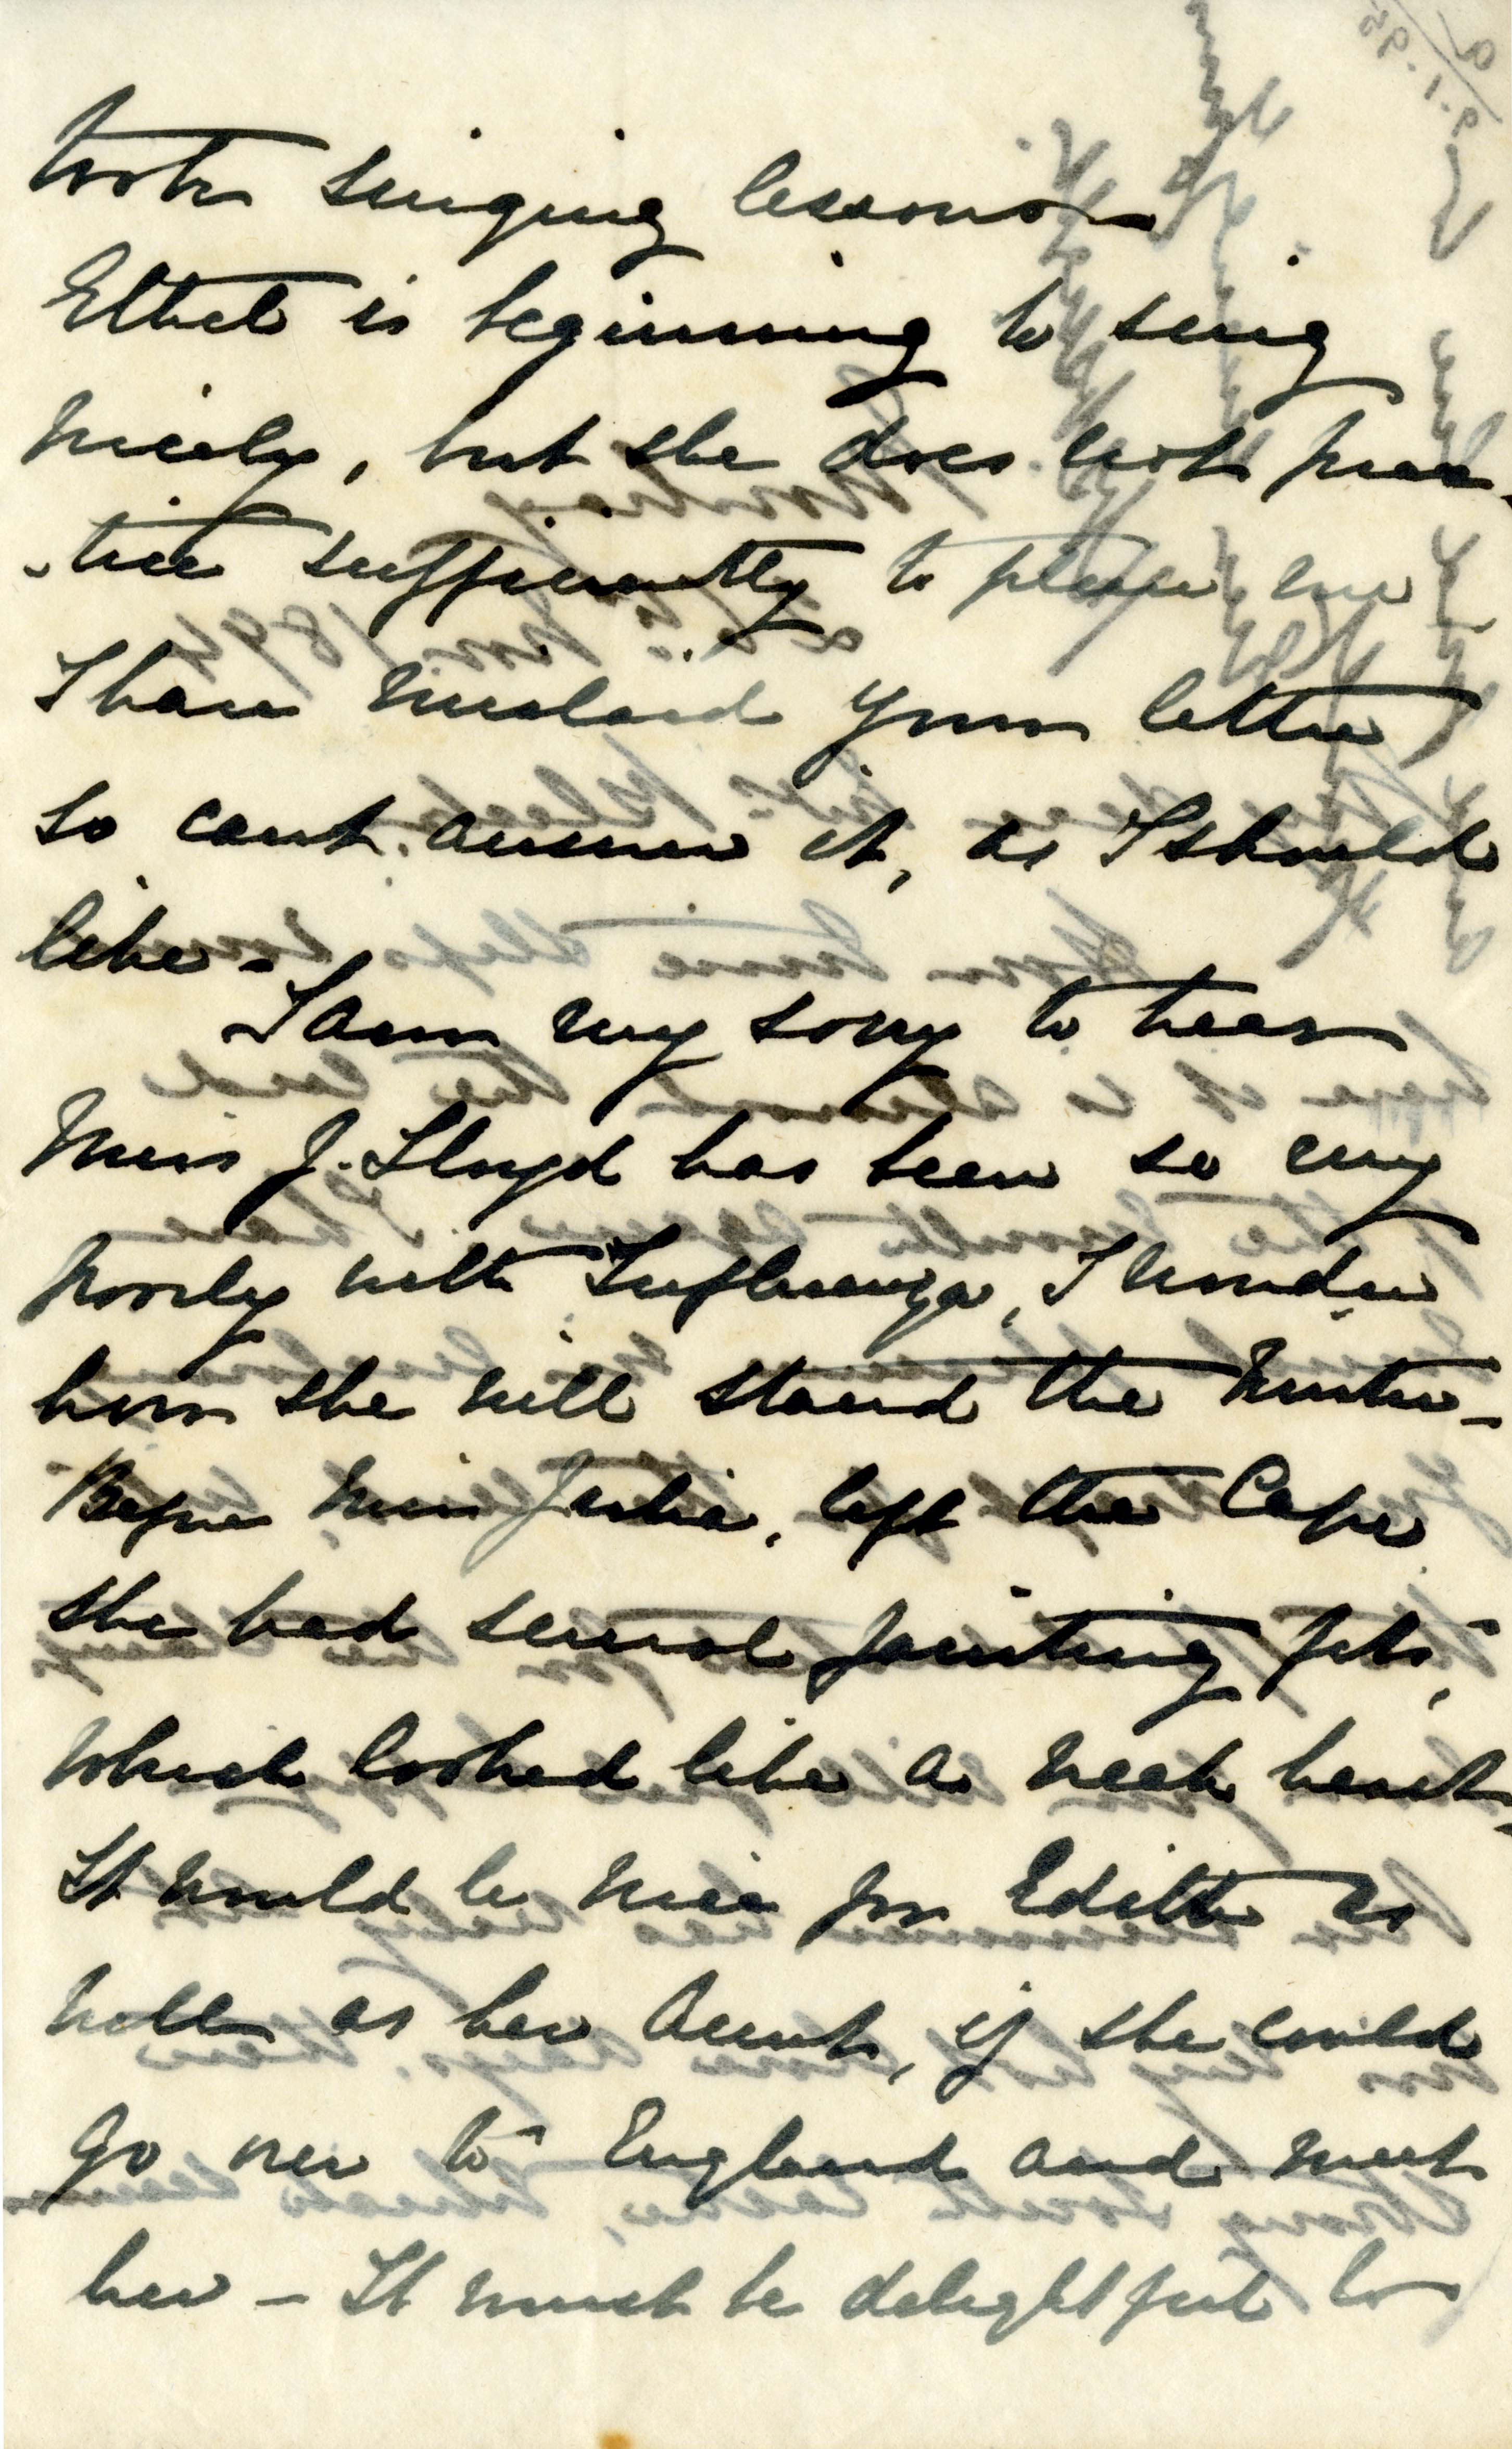 took singing lessons –
Ethel is beginning to sing
nicely, but she does not prac-
-tice sufficiently to please me
I have mislaid your letter
so cant answer it, as I should
like –
I am very sorry to hear
Miss J. Lloyd has been so very
poorly with Influenza, I wonder
how she will stand the Winter –
Before Miss Julia, left the Cape
she had several fainting fits,
which looked like a weak heart,
It would be nice for Edith as
well as her Aunt, if she could
go over to England and meet
her – It must be delightful to